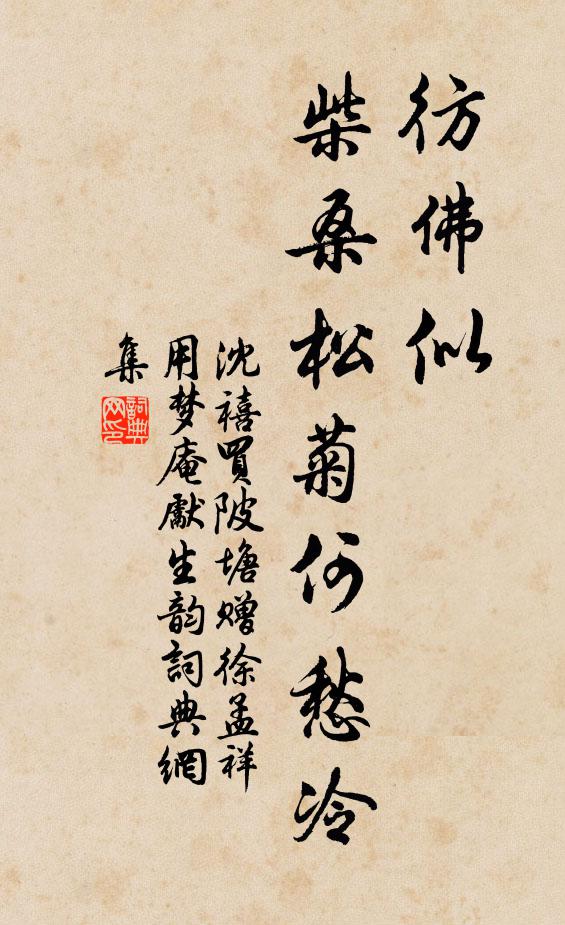 彷佛似
柴桑松菊何愁冷
沈禧買陂塘赠徐孟祥
用梦庵獻生韵詞典網
集
詞典
网印